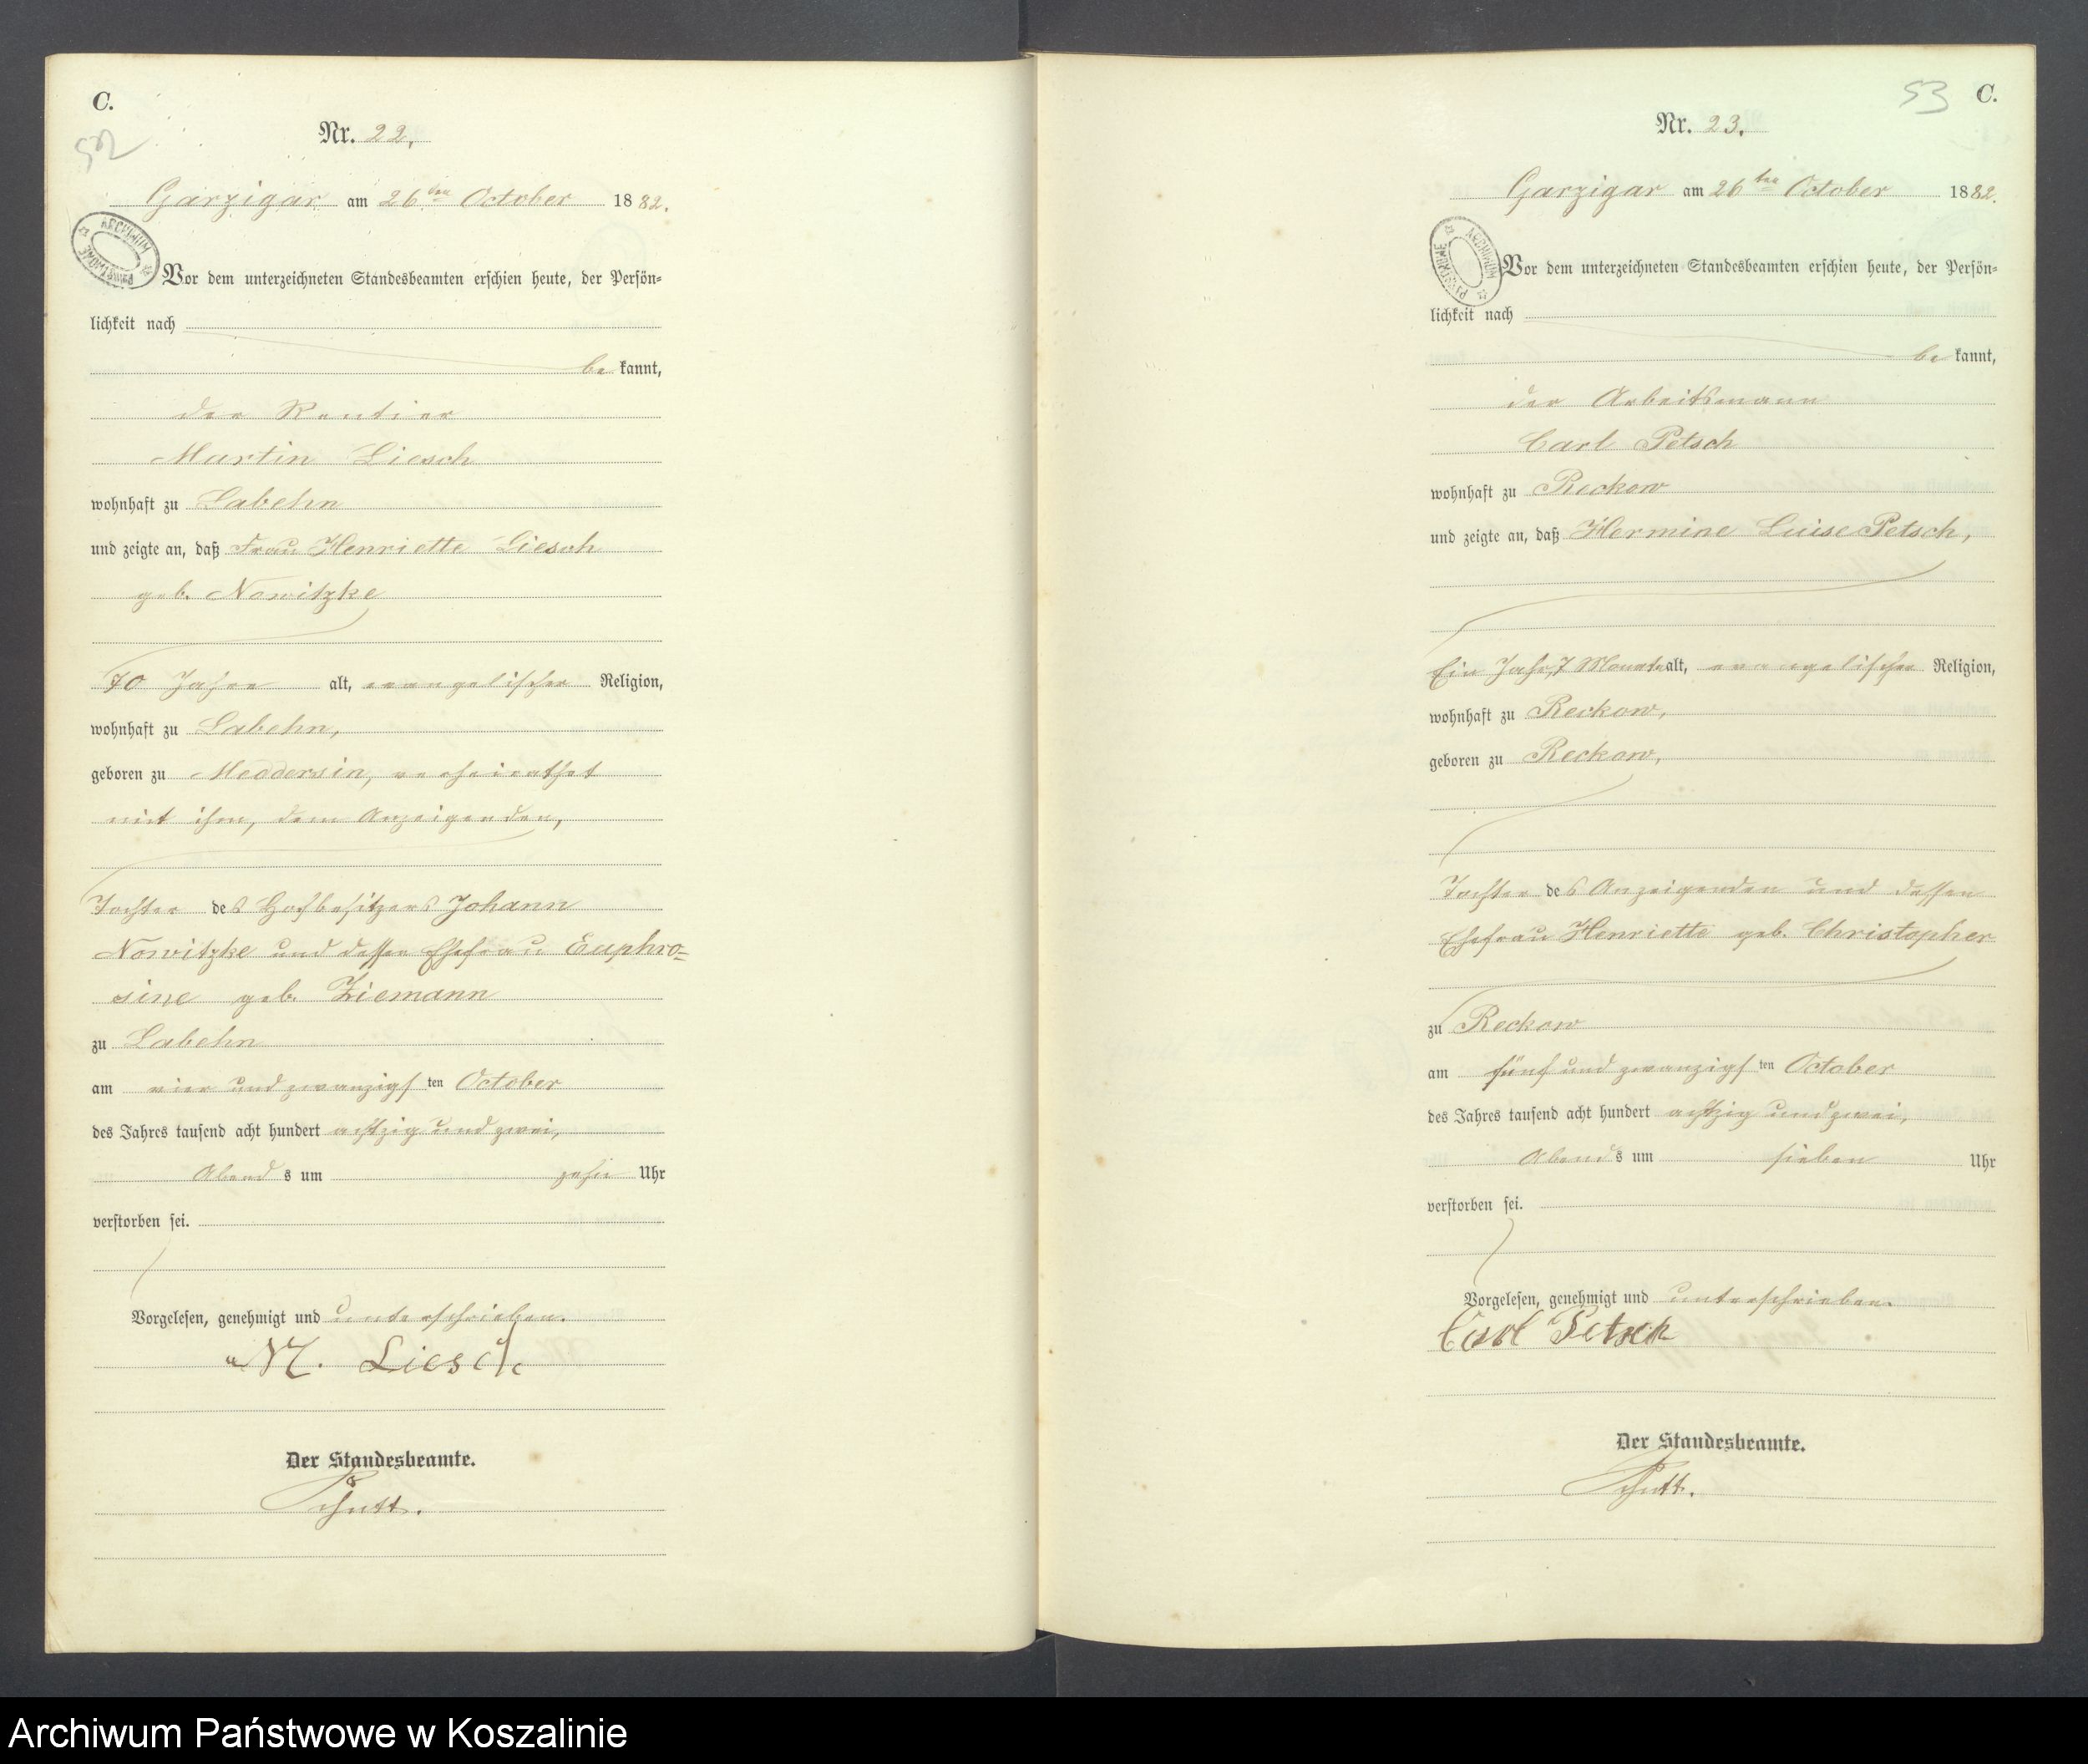 C.
52
Nr. 22,
Garzigar am 26ten October 1882.
ARCHIWUM PAŃSTWOWE
Vor dem unterzeichneten Standesbeamten erschien heute, der Persön=
lichkeit nach
be kannt,
der Rentier
Martin Liesch
wohnhaft zu Labehn
und zeigte an, daß Frau Henriette Liesch
geb. Nowitzke
70 Jahre alt, evangelischer Religion,
wohnhaft zu Labehn,
geboren zu Meddersin, verheirathet
mit ihm, dem Anzeigenden,
Tochter des Hofbesitzers Johann
Nowitzke und dessen Ehefrau Euphro=
sine geb. Ziemann
zu Labehn
am vier und zwanzigsten October
des Jahres tausend acht hundert achtzig und zwei,
Abends um zehn Uhr
verstorben sei.
Vorgelesen, genehmigt und unterschrieben.
M. Liesch
Der Standesbeamte.
53 C.
Nr. 23.
Garzigar am 26ten October 1882.
ARCHIWUM PAŃSTWOWE
Vor dem unterzeichneten Standesbeamten erschien heute, der Persön=
lichkeit nach
be kannt,
der Arbeitsmann
Carl Petsch
wohnhaft zu Reckow
und zeigte an, daß Hermine Luise Petsch,
Ein Jahr, 7 Monate alt, evangelischer Religion,
wohnhaft zu Reckow,
geboren zu Reckow,
Tochter des Anzeigenden und dessen
Ehefrau Henriette geb. Christopher
zu Reckow
am fünf und zwanzigsten October
des Jahres tausend acht hundert achtzig und zwei,
Abends um sieben Uhr
verstorben sei.
Vorgelesen, genehmigt und unterschrieben.
Carl Petsch
Der Standesbeamte.
Archiwum Państwowe w Koszalinie